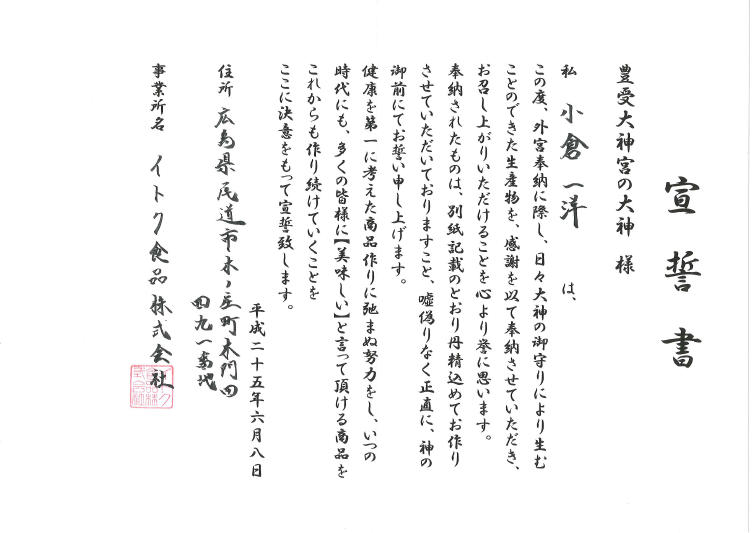 宣誓書
豊受大神宮の大神 様
私 小倉一洋 は、
この度、外宮奉納に際し、日々大神の御守りにより生む
ことのできた生産物を、感謝を以て奉納させていただき、
お召し上がりいただけることを心より誉に思います。
奉納されたものは、別紙記載のとおり丹精込めてお作り
させていただいておりますこと、嘘偽りなく正直に、神の
御前にてお誓い申し上げます。
健康を第一に考えた商品作りに弛まぬ努力をし、いつの
時代にも、多くの皆様に【美味しい】と言って頂ける商品を
これからも作り続けていくことを
ここに決意をもって宣誓致します。
平成二十五年六月八日
住所 広島県尾道市木ノ庄町木門田
四九一番地
事業所名 イトク食品株式会社